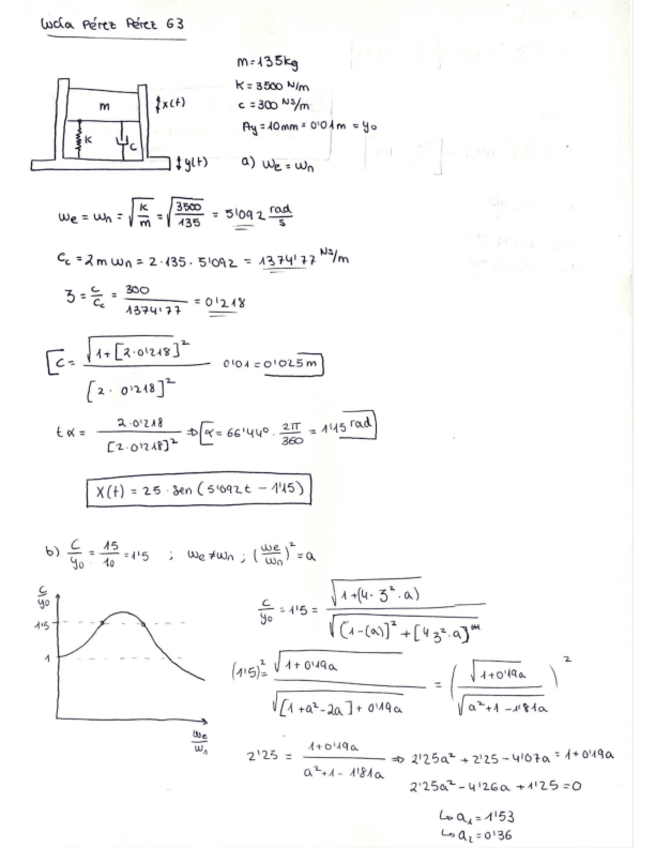 Lucía Pérez Pérez 63
m=135kg
K=3500 N/m
c=300 Ns/m
Ay=10mm=0'01m=y₀
m
x(t)
K
C
y(t)
a) ωe=ωn
ωe = ωn = √(K/m) = √(3500/135) = 5'092 rad/s
Cc = 2mωn = 2·135·5'092 = 1374'77 Ns/m
ʒ = c/Cc = 300/1374'77 = 0'218
C = √(1+[2·0'218]²) / [2·0'218]² 0'01 = 0'025m
tα = 2·0'218 / [2·0'218]² ⇒ α = 66'44º · 2π/360 = 1'15 rad
X(t) = 25·Sen(5'092t - 1'15)
b) C/y₀ = 15/10 = 1'5 ; ωe≠ωn ; (ωe/ωn)² = a
C/y₀
1'5
1
ωe/ωn
C/y₀ = 1'5 = √(1+(4·ʒ²·a)) / √([1-(a)]²+[4ʒ²·a])
(1'5)² = √(1+0'19a) / √([1+a²-2a]+0'19a) = (√(1+0'19a) / √(a²+1-1'81a))²
2'25 = (1+0'19a) / (a²+1-1'81a) ⇒ 2'25a²+2'25-4'07a = 1+0'19a
2'25a²-4'26a+1'25=0
↳ a₁=1'53
↳ a₂=0'36